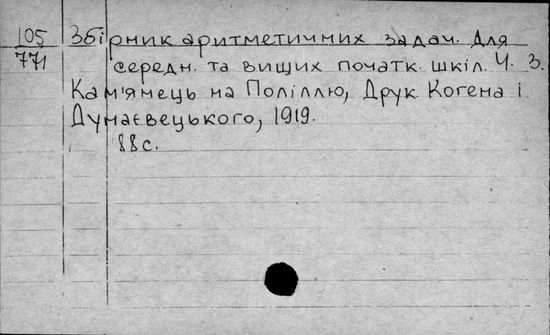 105
771
Збірник аритметичних задач. Для
середн. та вищих початк. шкіл. Ч. 3.
Кам'янець на Поліллю, Друк. Когена і
Думаєвецького, 1919.
88с.